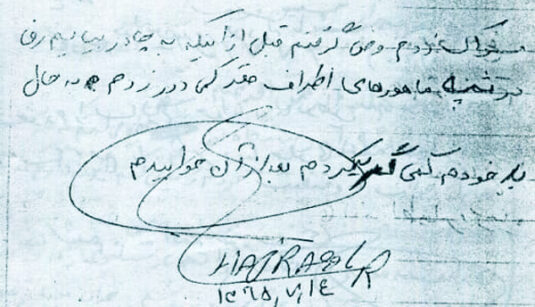 مسواک زدم وضو گرفتم قبل از اینکه به چادر بیایم رفتم
در تپه ماهورهای اطراف مقر کمی دور زدم و به حال
خودم کمی گریه کردم بعد از آن خوابیدم
HAJRASOL R
۱۳۶۵,۷,۱۴